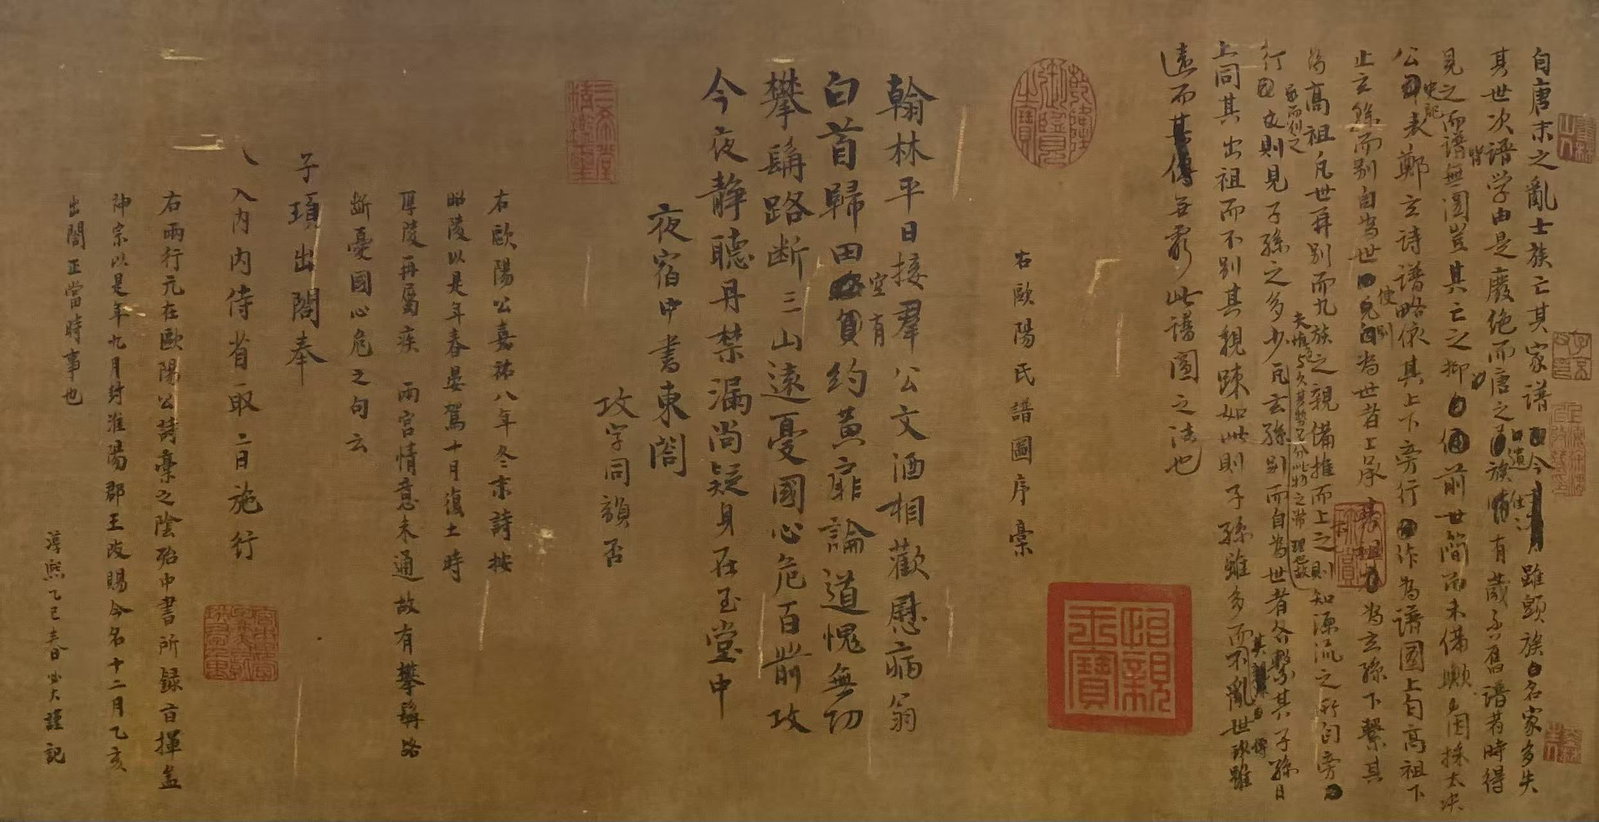 自唐末之亂士族亡其家譜今雖顯族名家多失
其世次譜学由是廢绝而唐之遺族往往有藏其舊譜者時得
見之而譜皆無圖豈其亡之抑前世簡而未備歟因採太史
公史記表鄭玄詩譜略依其上下旁行作為譜圖上自高祖下
止玄孫而别自為世使别為世者上承其祖為玄孫下繫其
孫為高祖凡世再别而九族之親備推而上之則知源流之所自旁
行而列之則見子孫之多少夫惟多與久其勢必分此物之常理也
故凡玄孫别而自為世者各繫其子孫日
上同其出祖而不别其親踈如此則子孫雖多而不亂世傳雖
遠而無窮此譜圖之法也
右歐陽氏譜圖序稾
翰林平日接羣公文酒相歡慰病翁
白首歸田空有約黄扉論道愧無功
攀髯路断三山遠憂國心危百箭攻
今夜静聽丹禁漏尚疑身在玉堂中
夜宿中書東閤
攻字同韻否
右歐陽公嘉祐八年冬末詩按
昭陵以是年春晏駕十月復土時
厚陵再屬疾 兩宫情意未通故有攀髯路
断憂國心危之句云
子頊出閤奉
入内内侍省取二日施行
右兩行元在歐陽公詩稾之陰殆中書所録旨揮盖
神宗以是年九月封淮陽郡王改賜今名十二月乙亥
出閤正當時事也
淳熈乙巳春必大謹記
怡親王寶
乾隆御覽之寶
三希堂精鑑璽
宜子孫